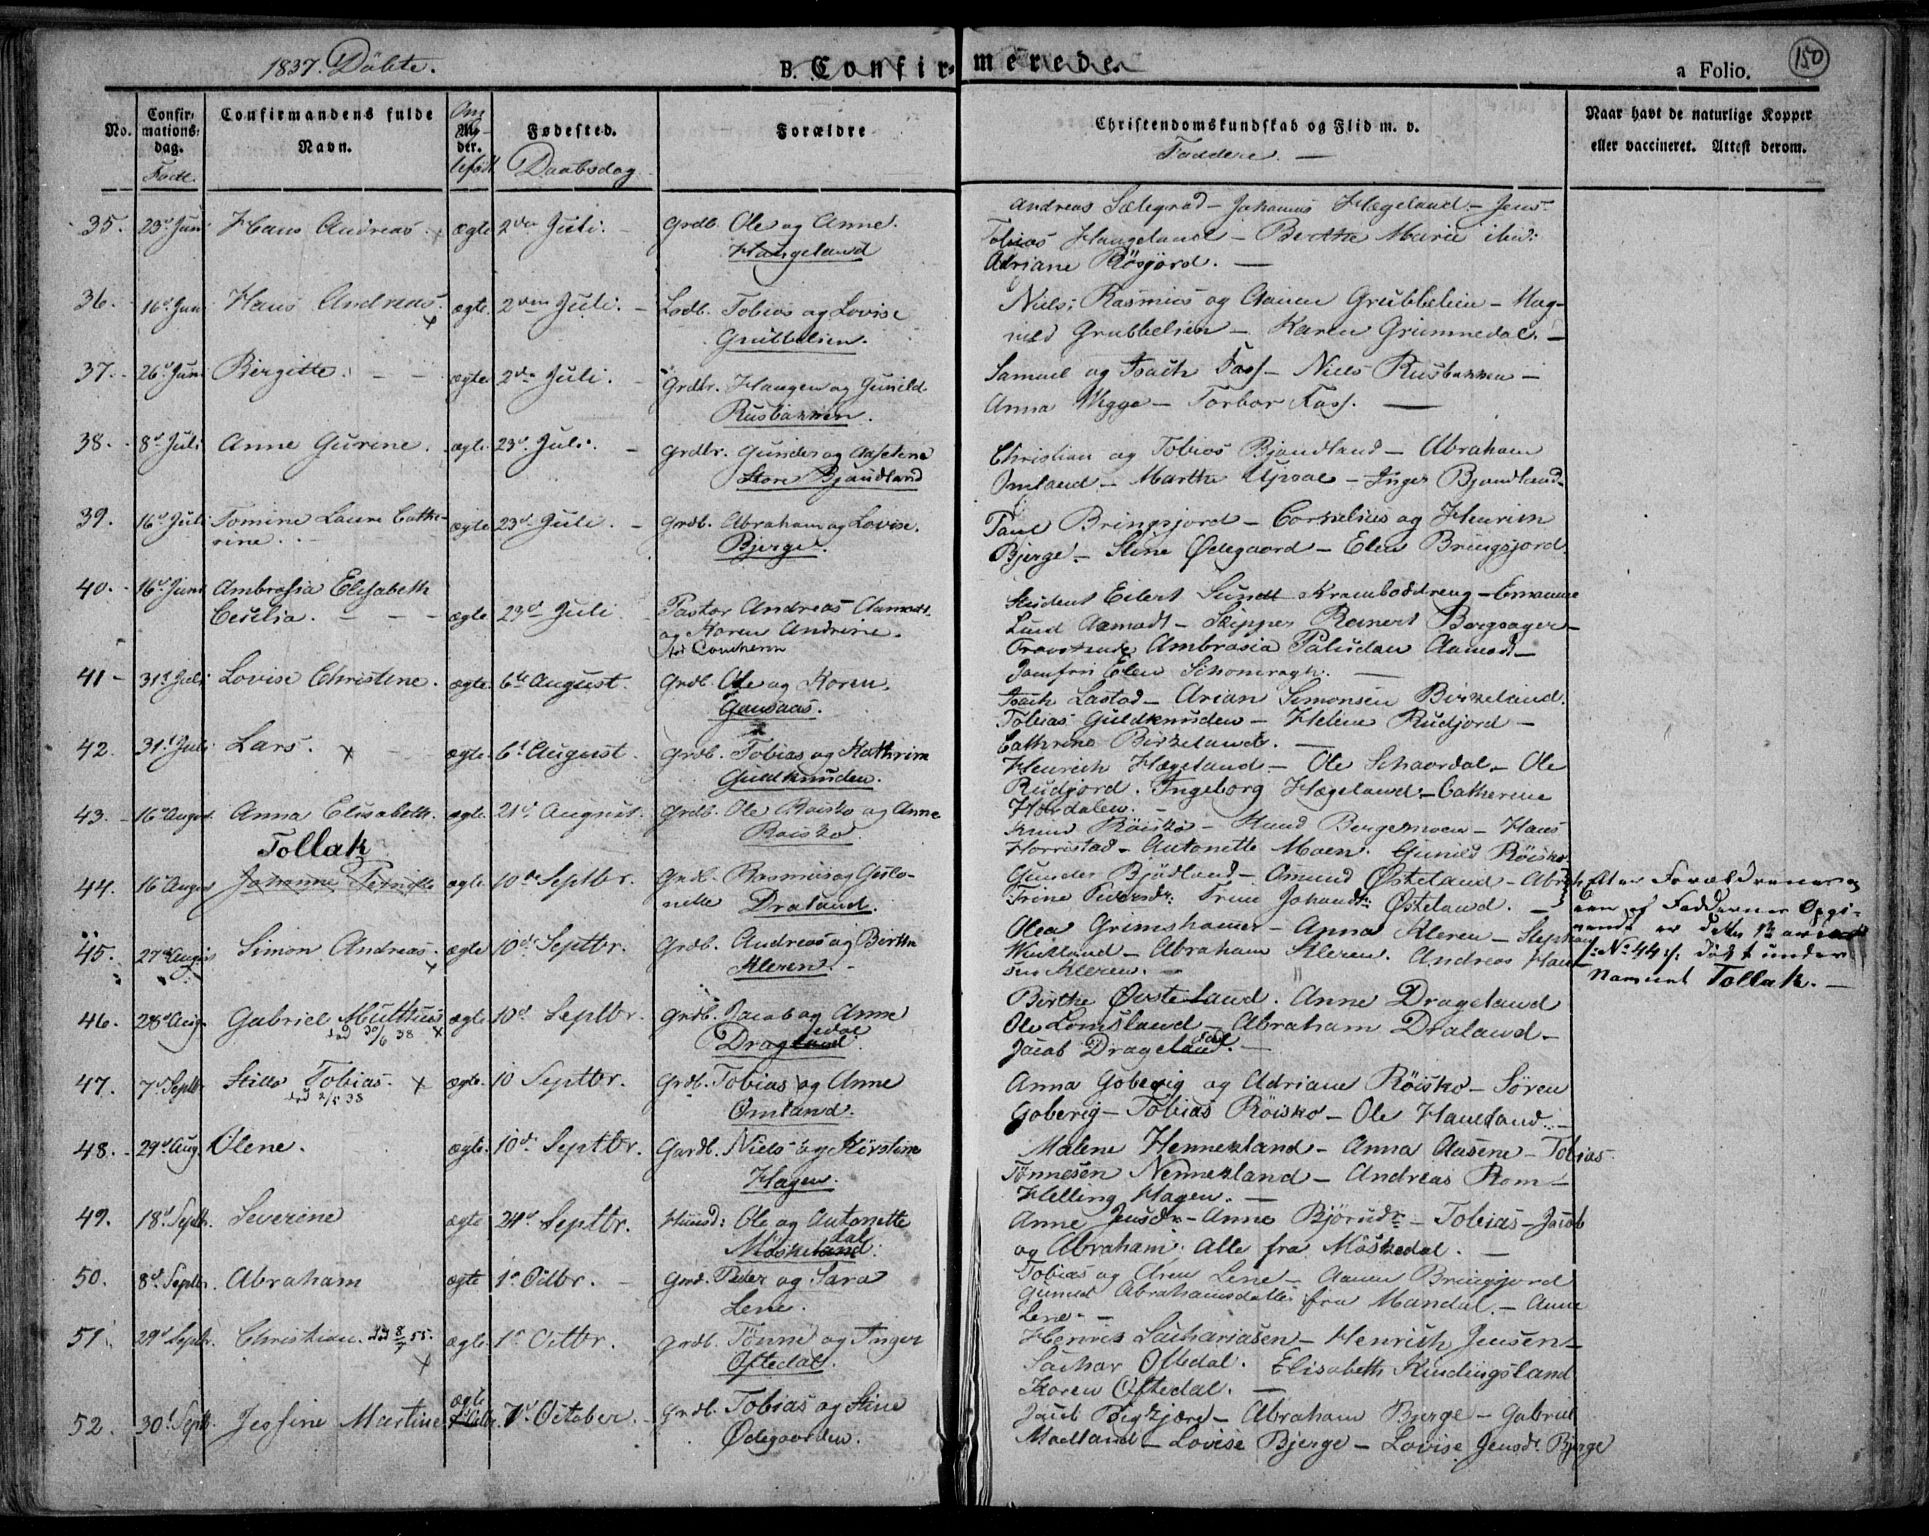 1837. Döbte.
B. Confirmerede.
a Folio. 150
No.
Confirmations-dag. Födt.
Confirmandens fulde Navn.
Om
lder.
Fødested. Daabsdag
Forældre
Christendomskundskab og Flid m. v. Faddere. —
Naar havt de naturlige Kopper eller vaccineret. Attest derom.
35. 23d Jun Hans Andreas. ægte 2den Juli. Grdb. Ole og Anne.
Haugeland
Andreas — Johannes Hægeland — Jens
Tobias Haugeland — Berthe Marie ibid:
Adriane Rösjörd. —
36. 16d Jun Hans Andreas. × ægte. 2den Juli. — Lodb. Tobias og Lovise
Grubbelien.
Niels; Rasmus og Aanen Grubbelien — Mag-
nild Grubbelien — Karen Grimnedal. —
37. 26d Juni Birgitte. — — ægte. 2den Juli. — Grdbr. Haagen og Gunild
Rusbakken.
Samuel og Isach Foss — Niels Rusbakken —
Anna Ugge — Torbor Foss. —
38. 8d Juli Anne Gurine. ægte. 23d Juli. — Grdbr. Gunder og Aaselene
Store Bjaudland
Christian og Tobias Bjaudland — Abraham
Omland — Marthe — Inger Bjaudland
39. 16d Juli Tomine Laure Cathe-
rine. ægte 23d Juli. — Grdb. Abraham og Lovise.
Bjerge.
Bringsjord — Cornelius og Henrich
Bjerge — Stine Ødegaard — Elen Bringsjord
40. 16d Juni Ambrosia Elisabeth
Cecilia. — — — ægte. 23d Juli Pastor Andreas Aamodt.
og Karen Andrine.
Student Eilert Sundt Kramboddreng — Emanuel
Lund Aamodt — Skipper Reinert Borgsager —
Ambrosia Paludan Aamodt —
Jomfru Elen
41 — 31d Juli Lovise Christine. ægte. 6te August. Grdb. Ole og Karen.
Gaasaas.
Isach Lastad — Arian Simonsen Birkeland.
Tobias Guldknuden — Helene Rudjord —
Cathrine Birkeland. —
42. 31d Juli Lars. × ægte. 6d August. Grdb. Tobias og Kathrine
Guldknuden.
Henrich Hægeland. — Ole — Ole
Rudjord. Ingeborg Hægeland. — Catherine
43. 16d August Anna Elisabeth. ægte. 21d August. Grdb. Ole Röisko og Anne
Röisko
Röisko — Knud Bergemoen — Hans
— Antonette Moen. Gunild Röisko
Tollak
44. 16d August ægte 10de Septbr. Grdb. Rasmus og
nette Draland.
Gunder Bjödland — Omund Østeland —
Trine — Trine Johansdt: Østeland. —
Efter Forældrenes og
een af Faddernes Opgi-
vende er dette Barn
No 44 döbt under
Navnet Tollak. —
45. 27d August Simon Andreas. × ægte 10d Septbr. Grdb. Andreas og Birthe
Kleren. —
Olea — Anna Kleren — Stephan
— Abraham Kleren. Andreas Han-
sen Kleren. —
46. 28d Aug. Gabriel
30/6 38 × ægte 10d Septbr. Grdb. Jacob og Anne
Dragland
Birthe Østeland. Anne Drageland
Ole Lomsland — Abraham Draland —
Jacob Drageland. —
47. 7d Septbr. Tobias. × ægte. 10 Septbr. Grdb. Tobias og Anne
Omland.
Anna Goberig og Adriane Röisko — Søren
Goberig — Tobias Röisko — Ole
48. 29d Aug. Olene. ægte. 10de Septbr. Gardb. Niels og Kirstine
Hagen.
Malene Hennekland — Anna Aasene — Tobias
Tønnesen Nennekland — Andreas Rom —
Helling Hagen. —
49. 18d Septbr. Severine ægte 24d Septbr. Huusd: Ole og Antonette
dal
Möskeland.
Anne Jensdr — Anne Björnsdr — Tobias — Jacob
og Abraham. Alle fra Möskedal. —
50. 8d Septbr. Abraham ægte 1e Octbr. — Grd. Peder og Sara
Lene.
Tobias og Aren Lene — Aanen Bringsjord
Gunild Abrahamsdatter fra Mandal. — Anne
Lene —
51. 29d Septbr. Christian. 55. × ægte 1e Octbr. Grdb. Tönne og Inger
Oftedal.
Henrik Sachariasen — Henrich Jensen —
Sachar Oftedal. Elisabeth Kindingsland
Karen Oftedal. —
52. 30d Septbr. Jessine Martine ægte 7d October. Grdb. Tobias og Stine
Ødegaarden.
Jacob Bigkjære — Abraham Bjerge — Gabriel
Moeland — Lovise Bjerge — Lovise Jensdr. Bjerge